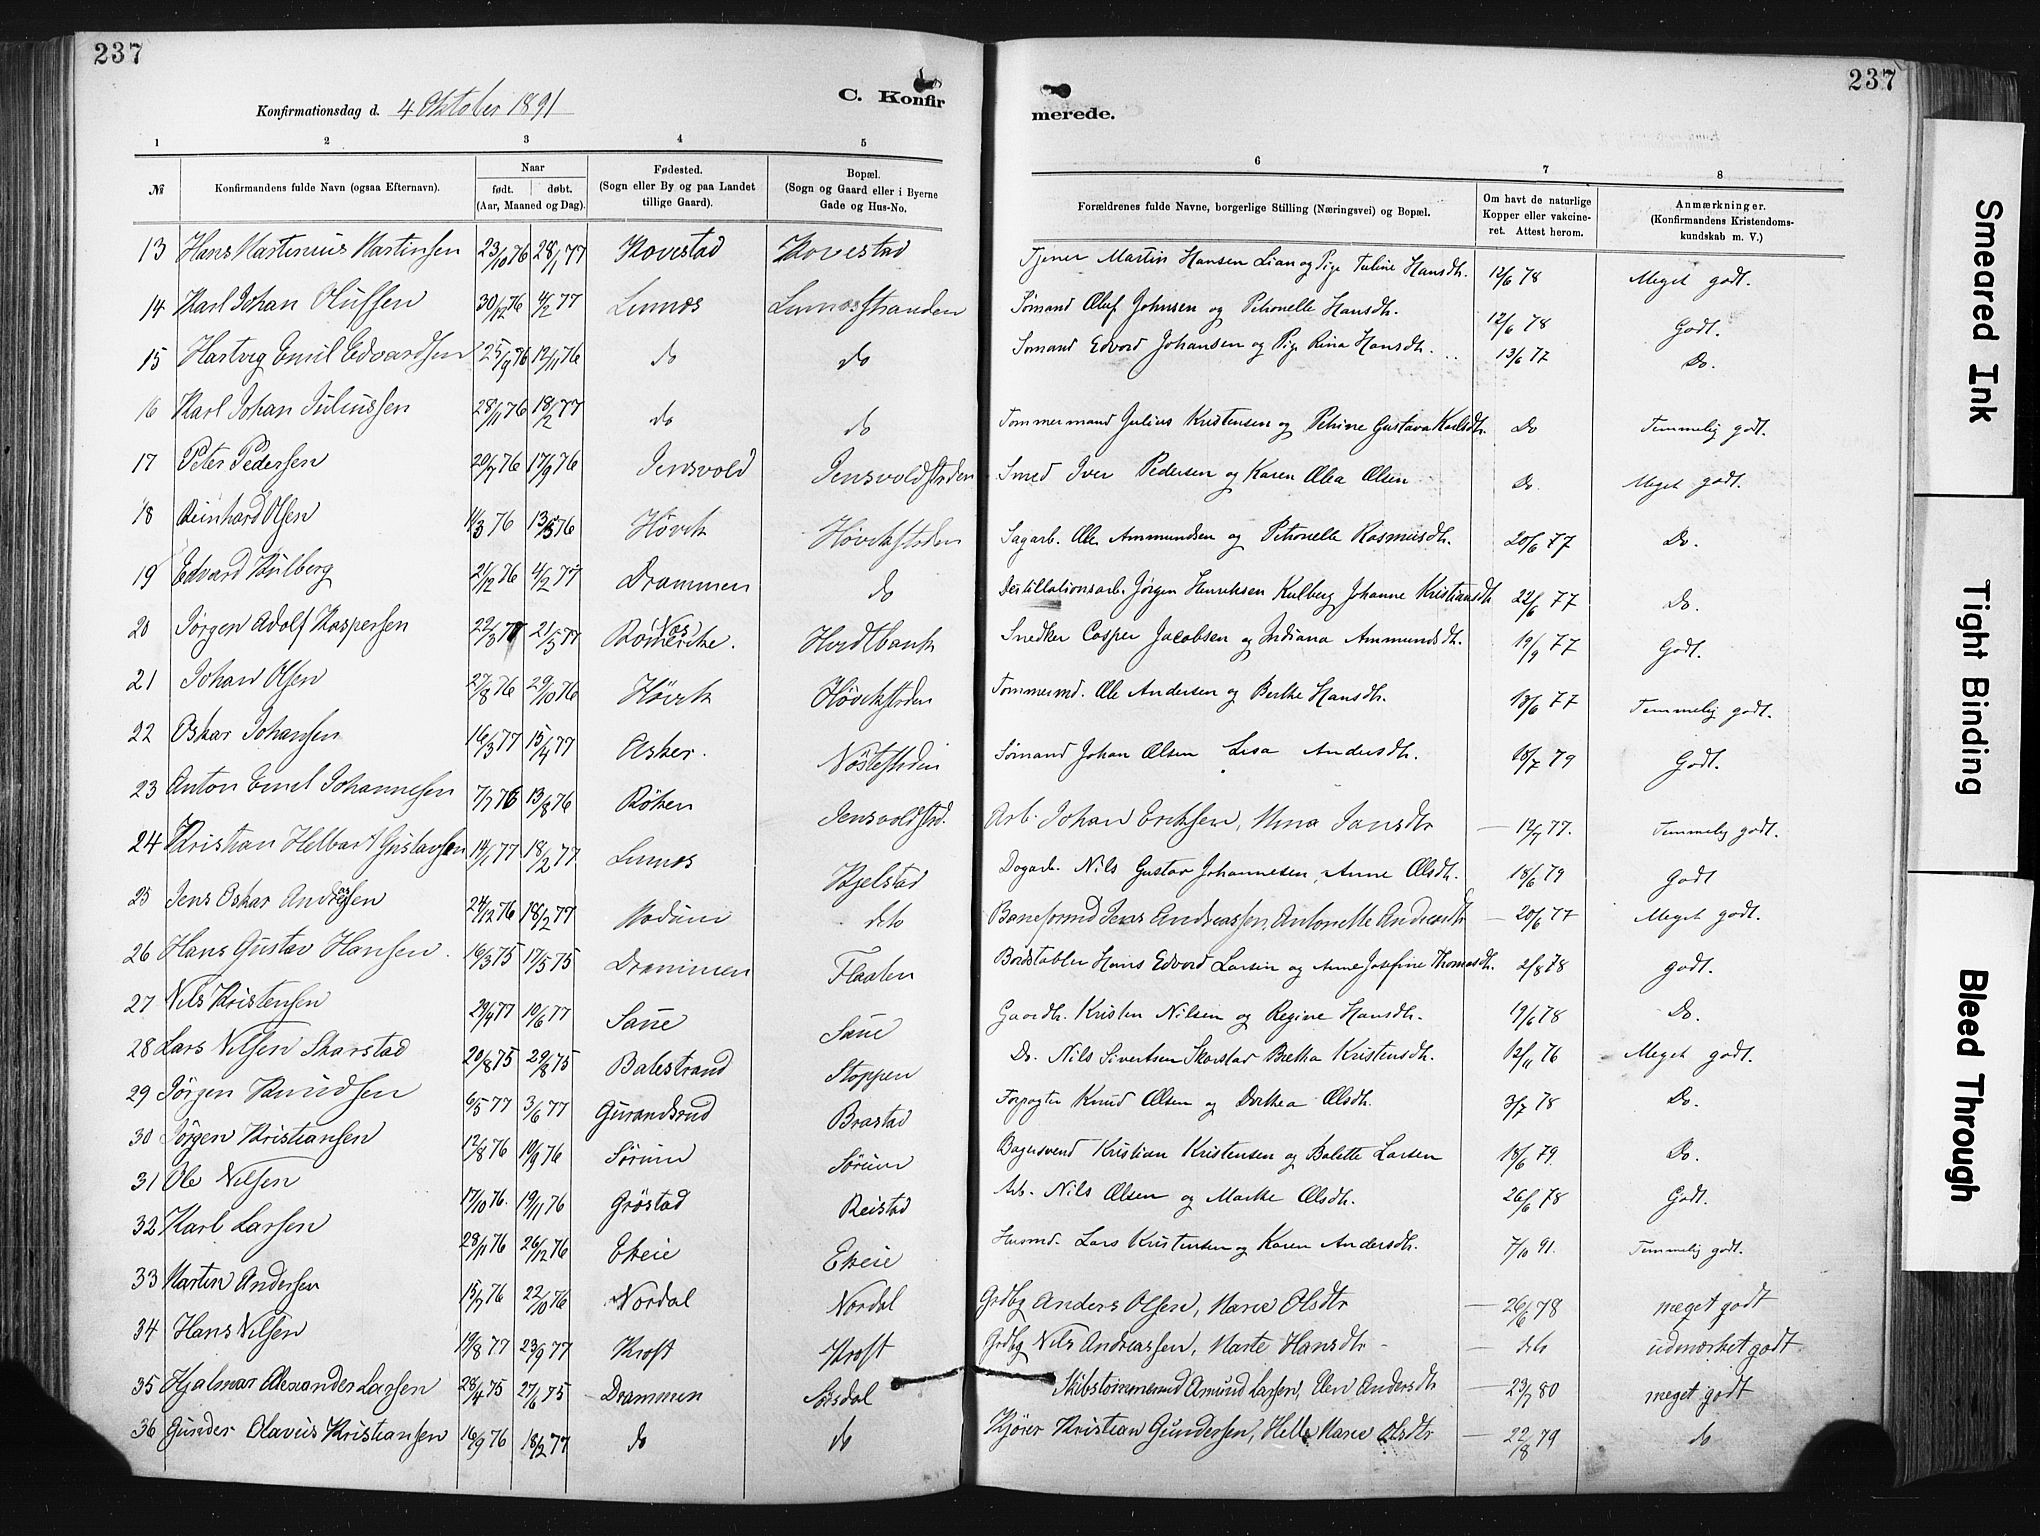 237
237
Konfirmationsdag d. 4 Oktober 1891
C. Konfir
merede.
1 2 3 4 5
6 7 8
№ Konfirmandens fulde Navn (ogsaa Efternavn). Naar født. døbt. (Aar, Maaned og Dag). Fødested. (Sogn eller By og paa Landet tillige Gaard). Bopæl. (Sogn og Gaard eller i Byerne Gade og Hus-No.
Forældrenes fulde Navne, borgerlige Stilling (Næringsvei) og Bopæl. Om havt de naturlige Kopper eller vakcineret. Attest herom. Anmærkninger. (Konfirmandens Kristendomskundskab m. V.)
13 Hans Martinius Martinsen 23/10 76 28/1 77 Hovestad Hovestad Tjener Martin Hansen Lian og Pige Tuline Hansdtr. 12/6 78 Meget godt.
14 Karl Johan Olufsen 30/12 76 4/2 77 Linnes Linnesstranden Sømand Oluf Johnsen og Petronelle Hansdtr. 12/6 78 Godt.
15 Hartvig Emil Edvardsen 25/9 76 12/11 76 do do Sømand Edvard Johansen og Pige Rina Hansdtr. 13/6 77 Do.
16 Karl Johan Juliussen 28/11 76 18/2 77 do do Tømmermand Julius Kristensen og Petrine Gustava Karlsdtr. Do Temmelig godt.
17 Peter Pedersen 20/7 76 17/9 76 Jensvold Jensvoldstrden Smed Iver Pedersen og Karen Olea Olsen Do. Meget godt.
18 Reinhard Olsen 11/3 76 13/5 76 Hövik Hövikstrden Sagarb. Ole Ammundsen og Petronelle Rasmusdtr. 20/6 77 Do.
19 Edvard Kulberg 21/12 76 4/2 77 Drammen do Destillationsarb. Jørgen Henriksen Kulberg Johanne Kristiansdtr 22/6 77 Do.
20 Jörgen Adolf Kaspersen 22/3 77 21/5 77 Snedker Casper Jacobsen og Indiana Ammundsdtr. 19/9 77 Godt.
21 Johan Olsen 27/8 76 29/10 76 Hövik Hövikstrden Tømmermd. Ole Andersen og Berthe Hansdtr. 18/6 77 Temmelig godt.
22 Oskar Johansen 16/3 77 15/4 77 Asker. Nöstestrden Sømand Johan Olsen Lisa Andersdtr. 18/7 79 Godt.
23 Anton Emil Johannesen 7/7 76 13/8 76 Röken Jensvoldstrd. Arb. Johan Eriksen, Mina Jansdtr — 12/7 77. Temmelig godt.
24 Kristian Helbart Gustavsen 14/1 77 18/2 77 Linnes Kjelstad Dagarb. Nils Gustav Johannesen, Anne Olsdtr. 18/6 79 Godt
25 Jens Oskar Andreassen 24/12 76 18/2 77 Modum dito Baneformd Jens Andreassen, Antonette Andreasdtr — 20/6 77 Meget godt.
26 Hans Gustav Hansen. 16/3 75 17/5 75 Drammen Flaaten Bordstabler Hans Edvard Larsen og Anne Josefine Thomasdtr. 2/8 78 godt.
27 Nils Kristensen 29/4 77 10/6 77 Saue Saue Gaardbr. Kristen Nilsen og Regine Hansdtr. 19/6 78 Do.
28 Lars Nilsen Skarstad 20/8 75 29/8 75 Balestrand Stoppen Do. Nils Sivertsen Skarstad Bretha Kristensdtr. 12/11 76 Meget godt.
29 Jörgen Knudsen 6/5 77 3/6 77 Gurandsrud Brastad Forpagter Knud Olsen og Dorthea Olsdtr. 3/7 78 Do.
30 Jörgen Kristiansen 12/8 76 10/9 76 Sörum Sörum Bagersvend Kristian Kristensen og Balette Larsen 18/6 79. Do.
31 Ole Nilsen 17/10 76. 19/11 76 Gröstad Reistad Arb. Nils Olsen og Marthe Olsdtr. 26/6 78 Godt.
32 Karl Larsen 28/11 76 26/12 76 Ekeie Ekeie Husmd. Lars Kristensen og Karen Andersdtr. 7/10 91. Temmelig godt.
33 Martin Andersen 15/7 76 22/10 76 Nordal Nordal Grdbg Anders Olsen, Marie Olsdtr — 26/6 78 meget godt
34 Hans Nilsen 19/8 77 23/9 77 Kroft Kroft Grdbg Nils Andreassen, Marte Hansdtr - dito udmærket godt
35 Hjalmar Alexander Larsen 28/4 75 27/6 75 Drammen Sörsdal Skibstømmermd Amund Larsen, Elen Andersdtr — 23/7 80 meget godt
36 Gunder Olavus Kristiansen 16/9 76 18/2 77 do do Kjörer Kristian Gundersen, Helle Marie Olsdtr — 22/8 79 do
Smeared Ink
Tight Binding
Bleed Through